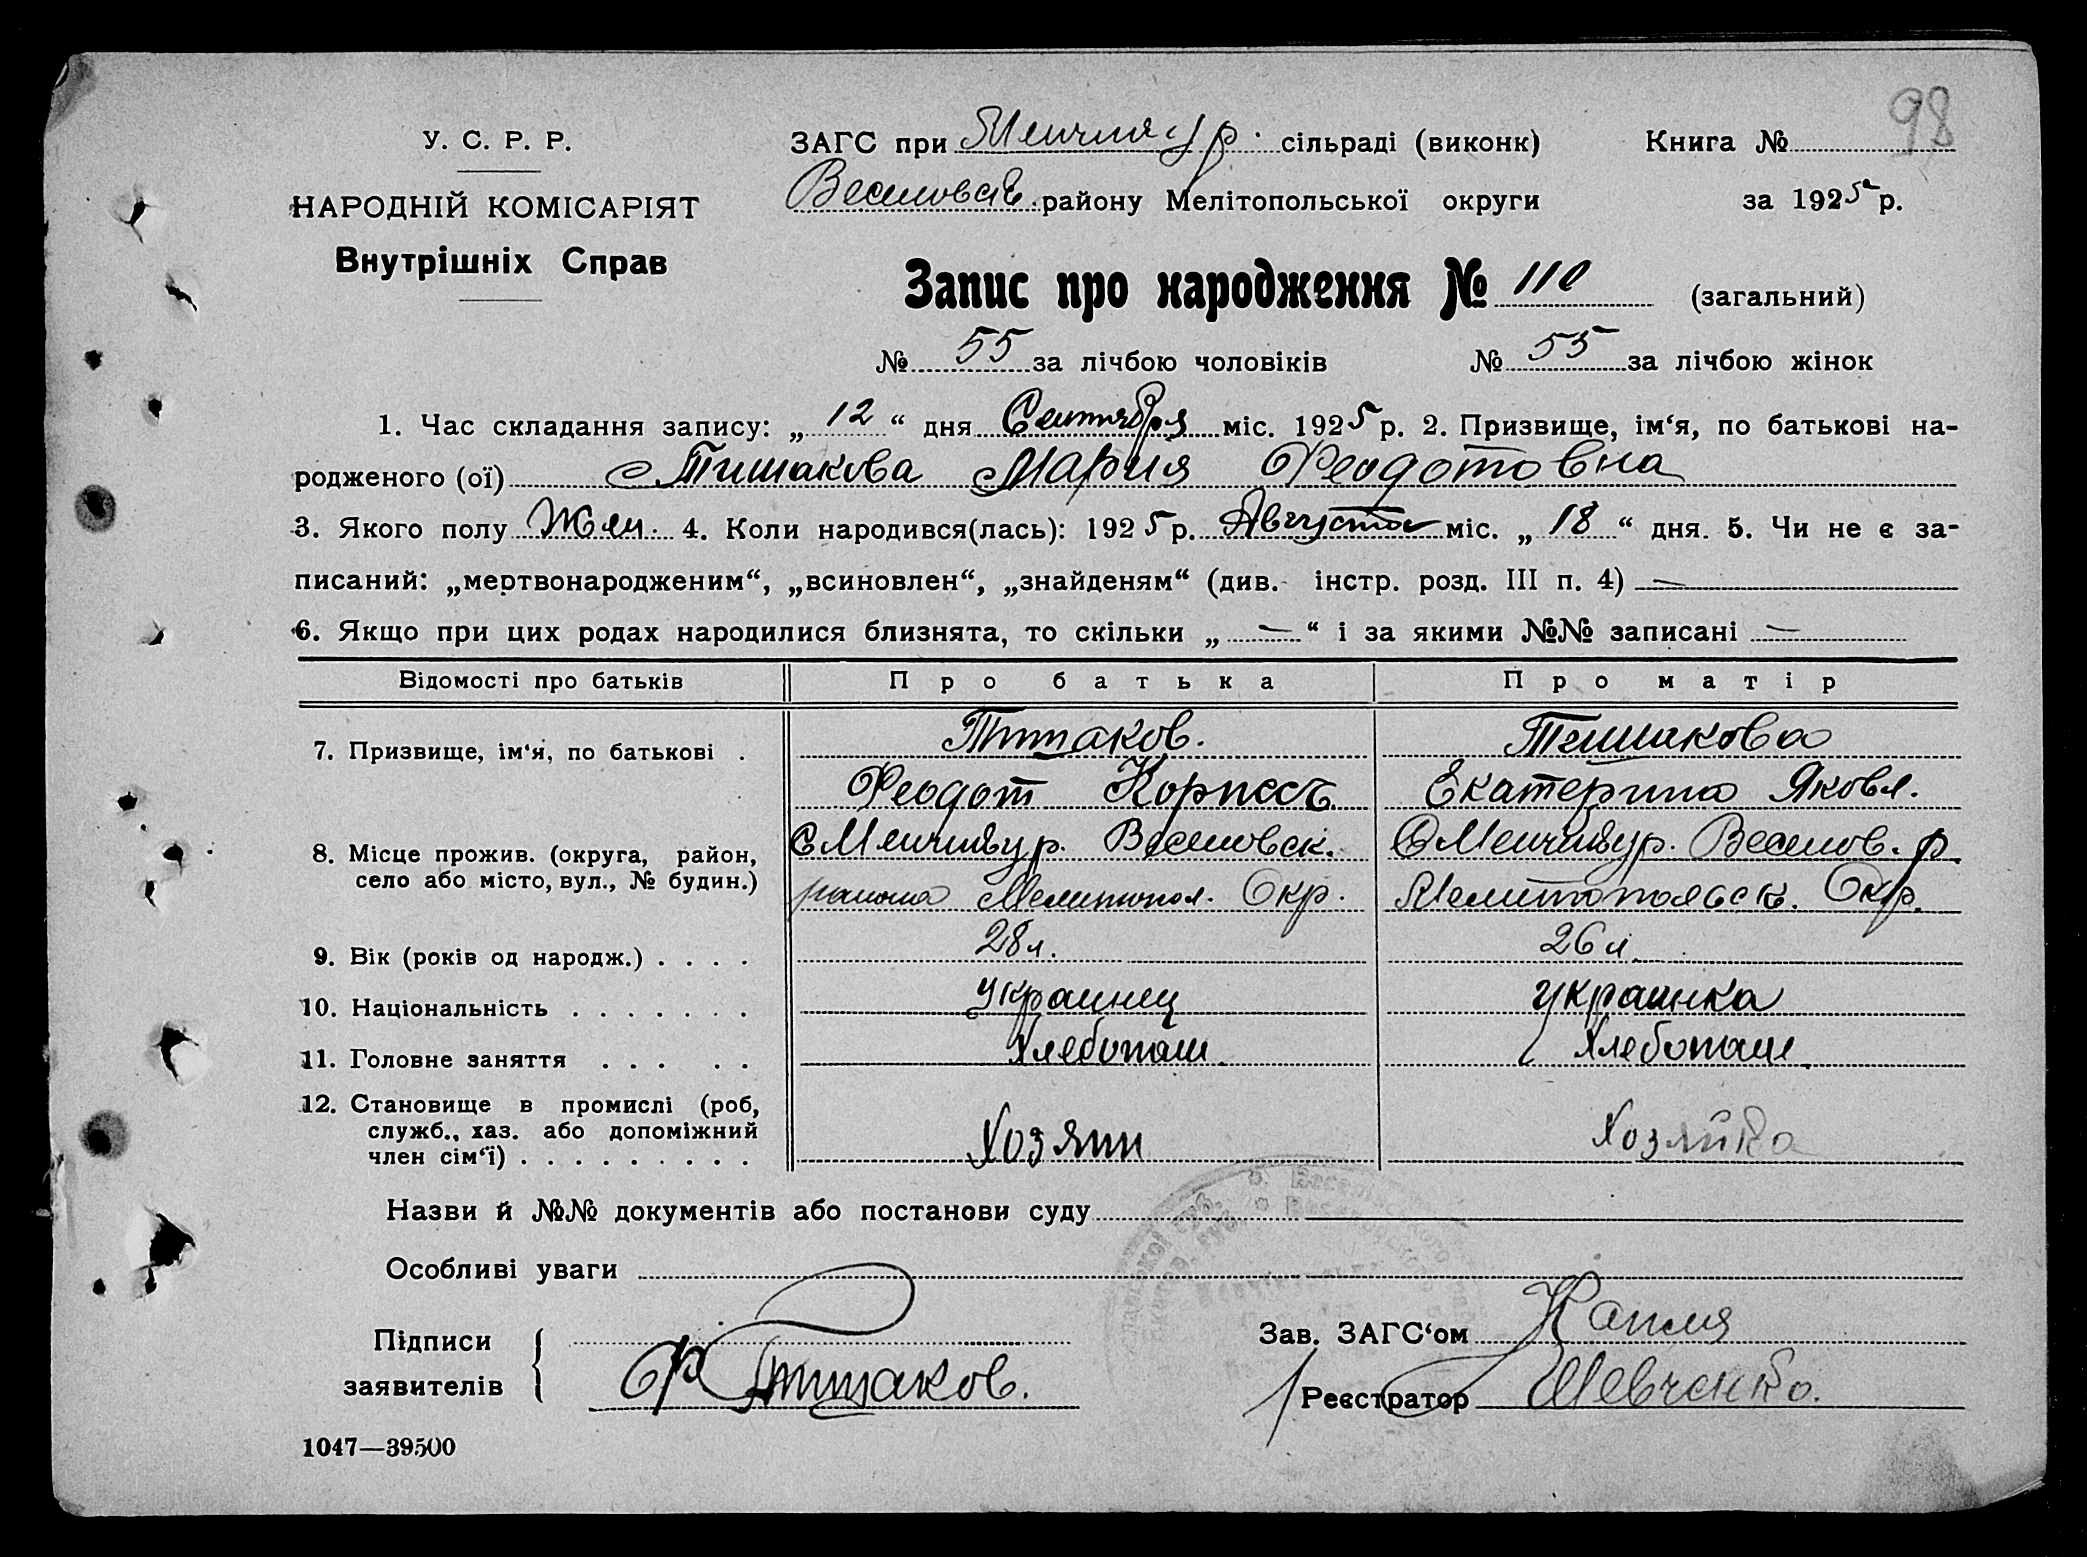 98
У. С. Р. Р.
НАРОДНІЙ КОМІСАРІЯТ
Внутрішніх Справ
ЗАГС при Менчикур. сільраді (виконк) Книга №
Веселовск. району Мелітопольської округи за 1925 р.
Запис про народження № 110 (загальний)
№ 55 за лічбою чоловіків № 55 за лічбою жінок
1. Час складання запису: „ 12 “ дня Сентября міс. 1925 р. 2. Призвище, ім‘я, по батькові на-
родженого (ої) Тишакова Мария Феодотовна
3. Якого полу Жен. 4. Коли народився(лась): 1925 р. Августа міс. „ 18 “ дня. 5. Чи не є за-
писаний: „мертвонародженим“, „всиновлен“, „знайденям“ (див. інстр. розд. III п. 4) —
6. Якщо при цих родах народилися близнята, то скільки „ — “ і за якими №№ записані —
Відомості про батьків Про батька Про матір
7. Призвище, ім‘я, по батькові . Тишаков. Тишакова
Феодот Екатерина Яковл.
8. Місце прожив. (округа, район, С Менчикур. Веселовск. С Менчикур. Веселов. р.
село або місто, вул., № будин.) района Мелитопол. Окр. Мелитопольск. Окр.
9. Вік (років од народж.) . . . . 28 л. 26 л.
10. Національність . . . . . . . Украинец Украинка
11. Головне заняття . . . . . Хлебопаш. Хлебопаш.
12. Становище в промислі (роб,
служб., хаз. або допоміжний Хозяин Хозяйка
член сім‘ї) . . . . . . . . .
Назви й №№ документів або постанови суду
Особливі уваги
Підписи Зав. ЗАГС‘ом Капля
заявителів Ф Тишаков. Реєстратор Шевченко.
1047—39500